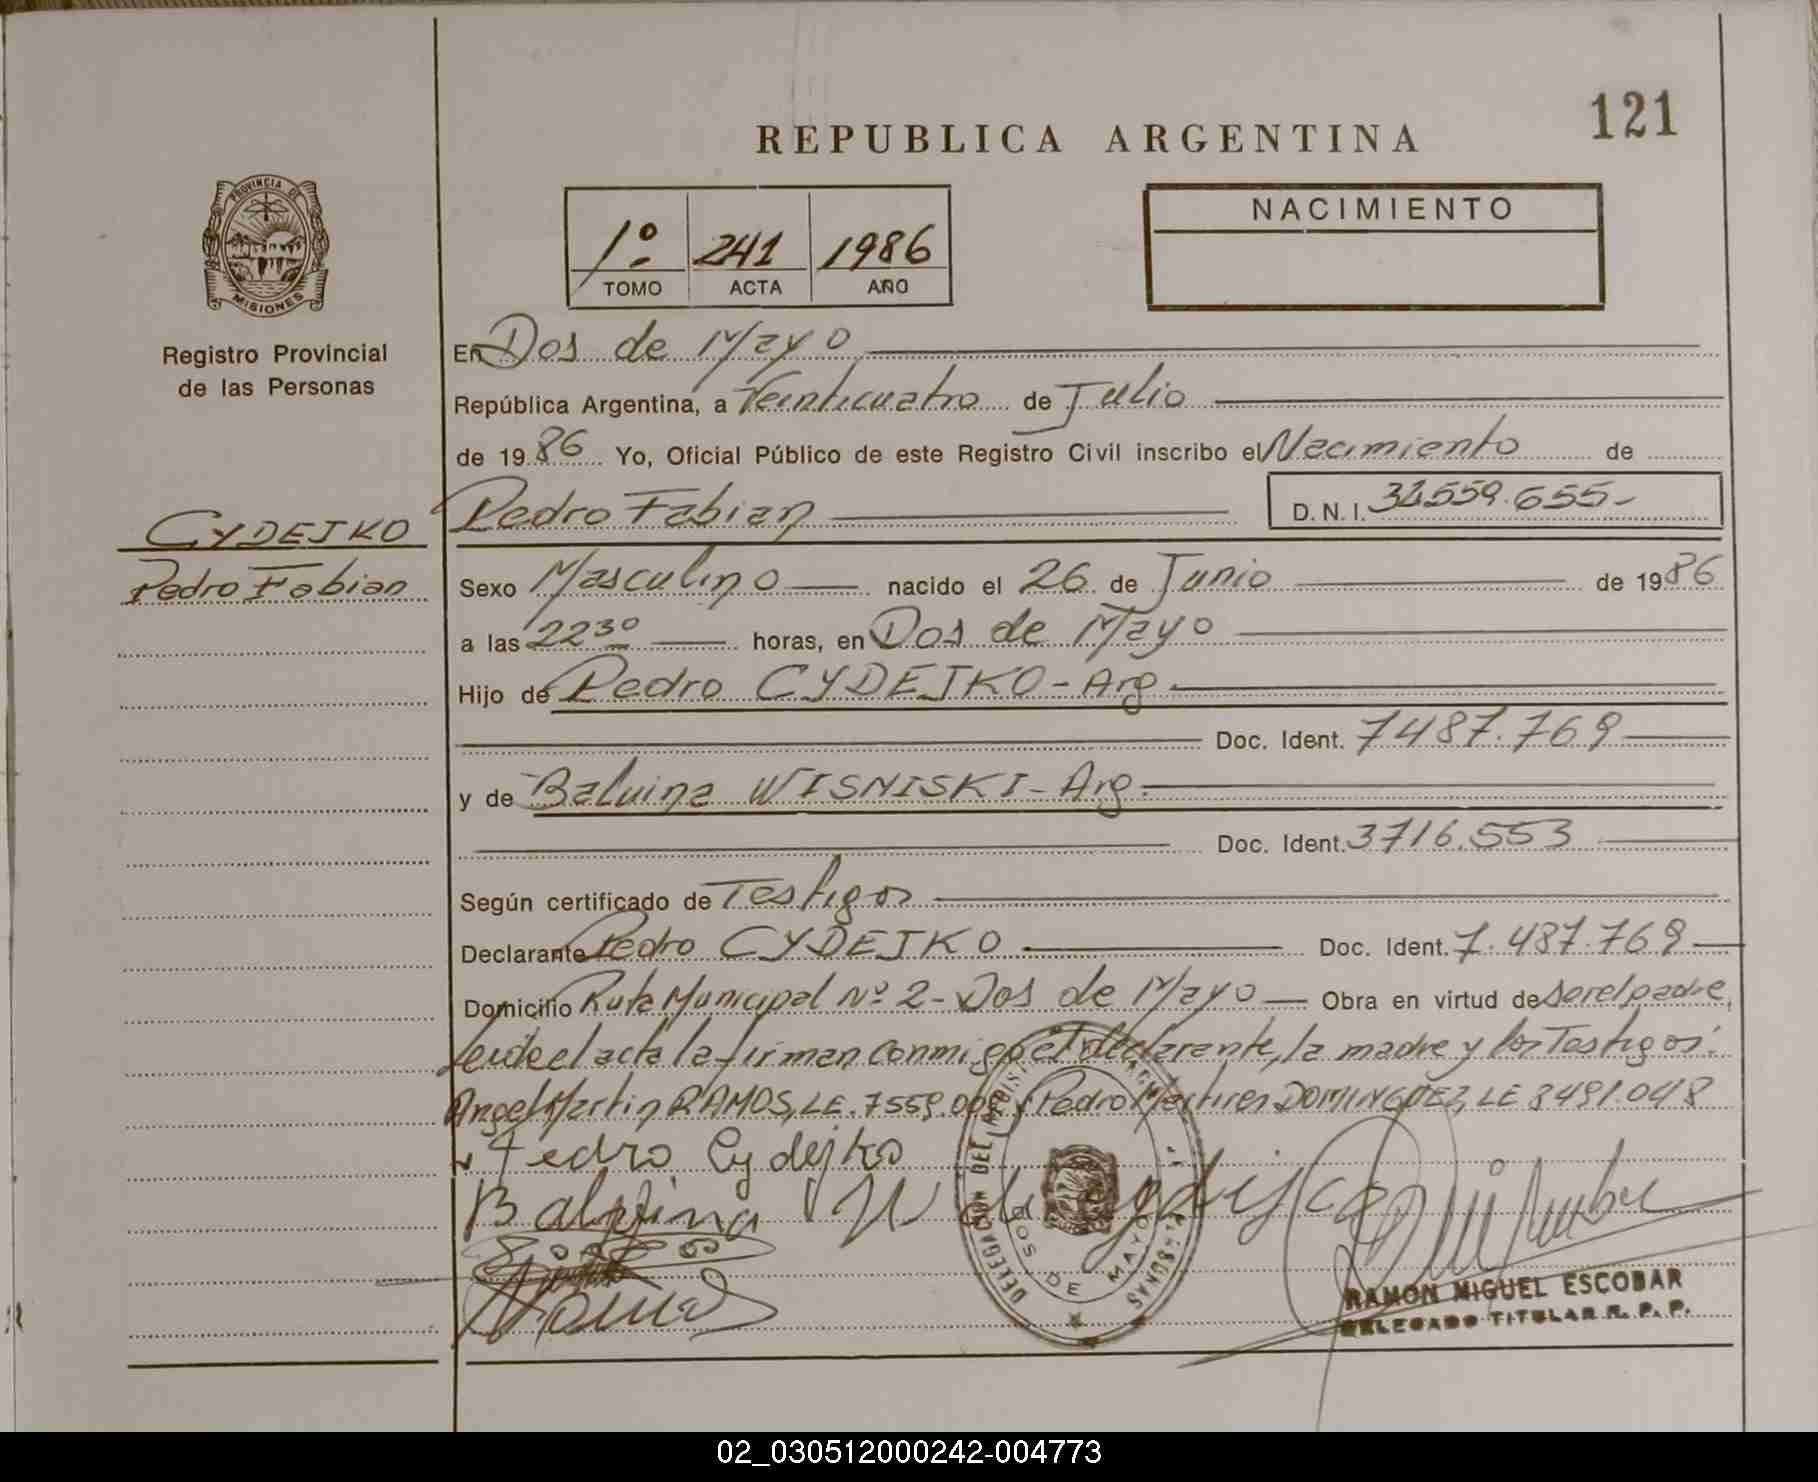 121
REPUBLICA ARGENTINA
PROVINCIA DE
MISIONES
Registro Provincial
de las Personas
1º 241 1986
TOMO ACTA AÑO
NACIMIENTO
En Dos de Mayo
República Argentina, a Veinticuatro de Julio
de 1986 Yo, Oficial Público de este Registro Civil inscribo el Nacimiento de
CYDEJKO
Pedro Fabian
Pedro Fabian D.N.I. 32559.655-
Sexo Masculino nacido el 26 de Junio de 1986
a las 22 30 horas, en Dos de Mayo
Hijo de Pedro CYDEJKO - Arg
Doc. Ident. 7487.769
y de Balvina WISNISKI - Arg.
Doc. Ident. 3716.553
Según certificado de Testigos
Declarante Pedro CYDEJKO Doc. Ident. 7.487.769
Domicilio Ruta Municipal Nº 2 - Dos de Mayo Obra en virtud de ser el padre,
Leida el acta la firman conmigo el declarante, la madre y los Testigos:
Angel Martin RAMOS, LE. 7559.009 y Pedro Martires DOMINGUEZ, LE 8491.048
Pedro Cydejko
Balvina
DELEGACION DEL REGISTRO
DOS DE MAYO
RAMON MIGUEL ESCOBAR
DELEGADO TITULAR R. P. P.
02_030512000242-004773